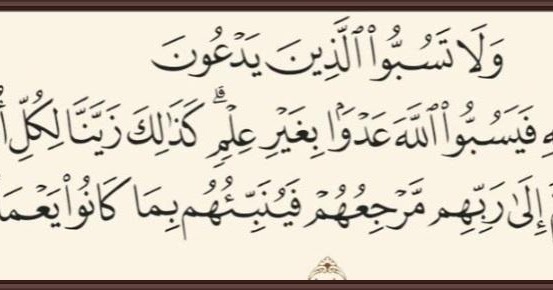 وَلَا تَسُبُّوا۟ ٱلَّذِينَ يَدْعُونَ
فَيَسُبُّوا۟ ٱللَّهَ عَدْوًۢا بِغَيْرِ عِلْمٍۗ كَذَٰلِكَ زَيَّنَّا لِكُلِّ
إِلَىٰ رَبِّهِم مَّرْجِعُهُمْ فَيُنَبِّئُهُم بِمَا كَانُوا۟